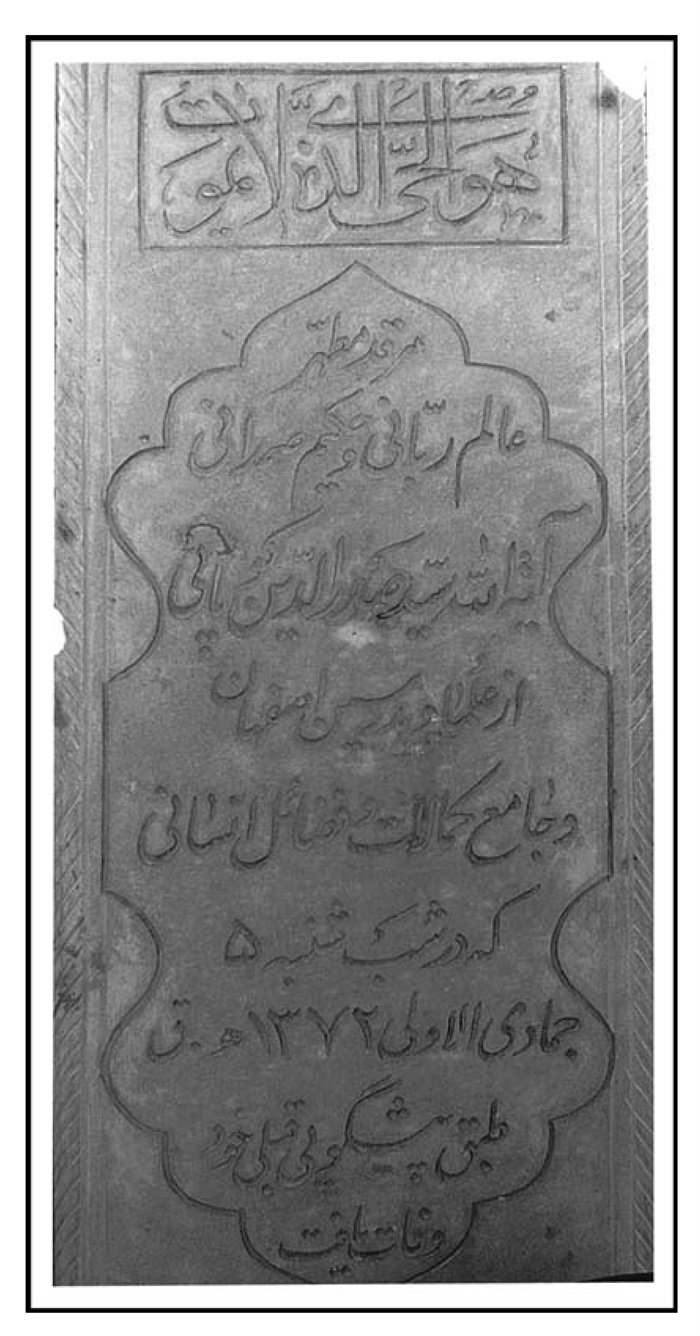 هو الحیّ الذی لا یموت
مرقد مطهّر
عالم ربّانی و حکیم صمدانی
آیة الله سیّد صدرالدّین کوپائی
از علما و مدرسین اصفهان
و جامع کمالات و فضائل انسانی
که در شب شنبه ۵
جمادی الاولی ۱۳۷۲ ه.ق
طبق پیشگویی قبلی خود
وفات یافت